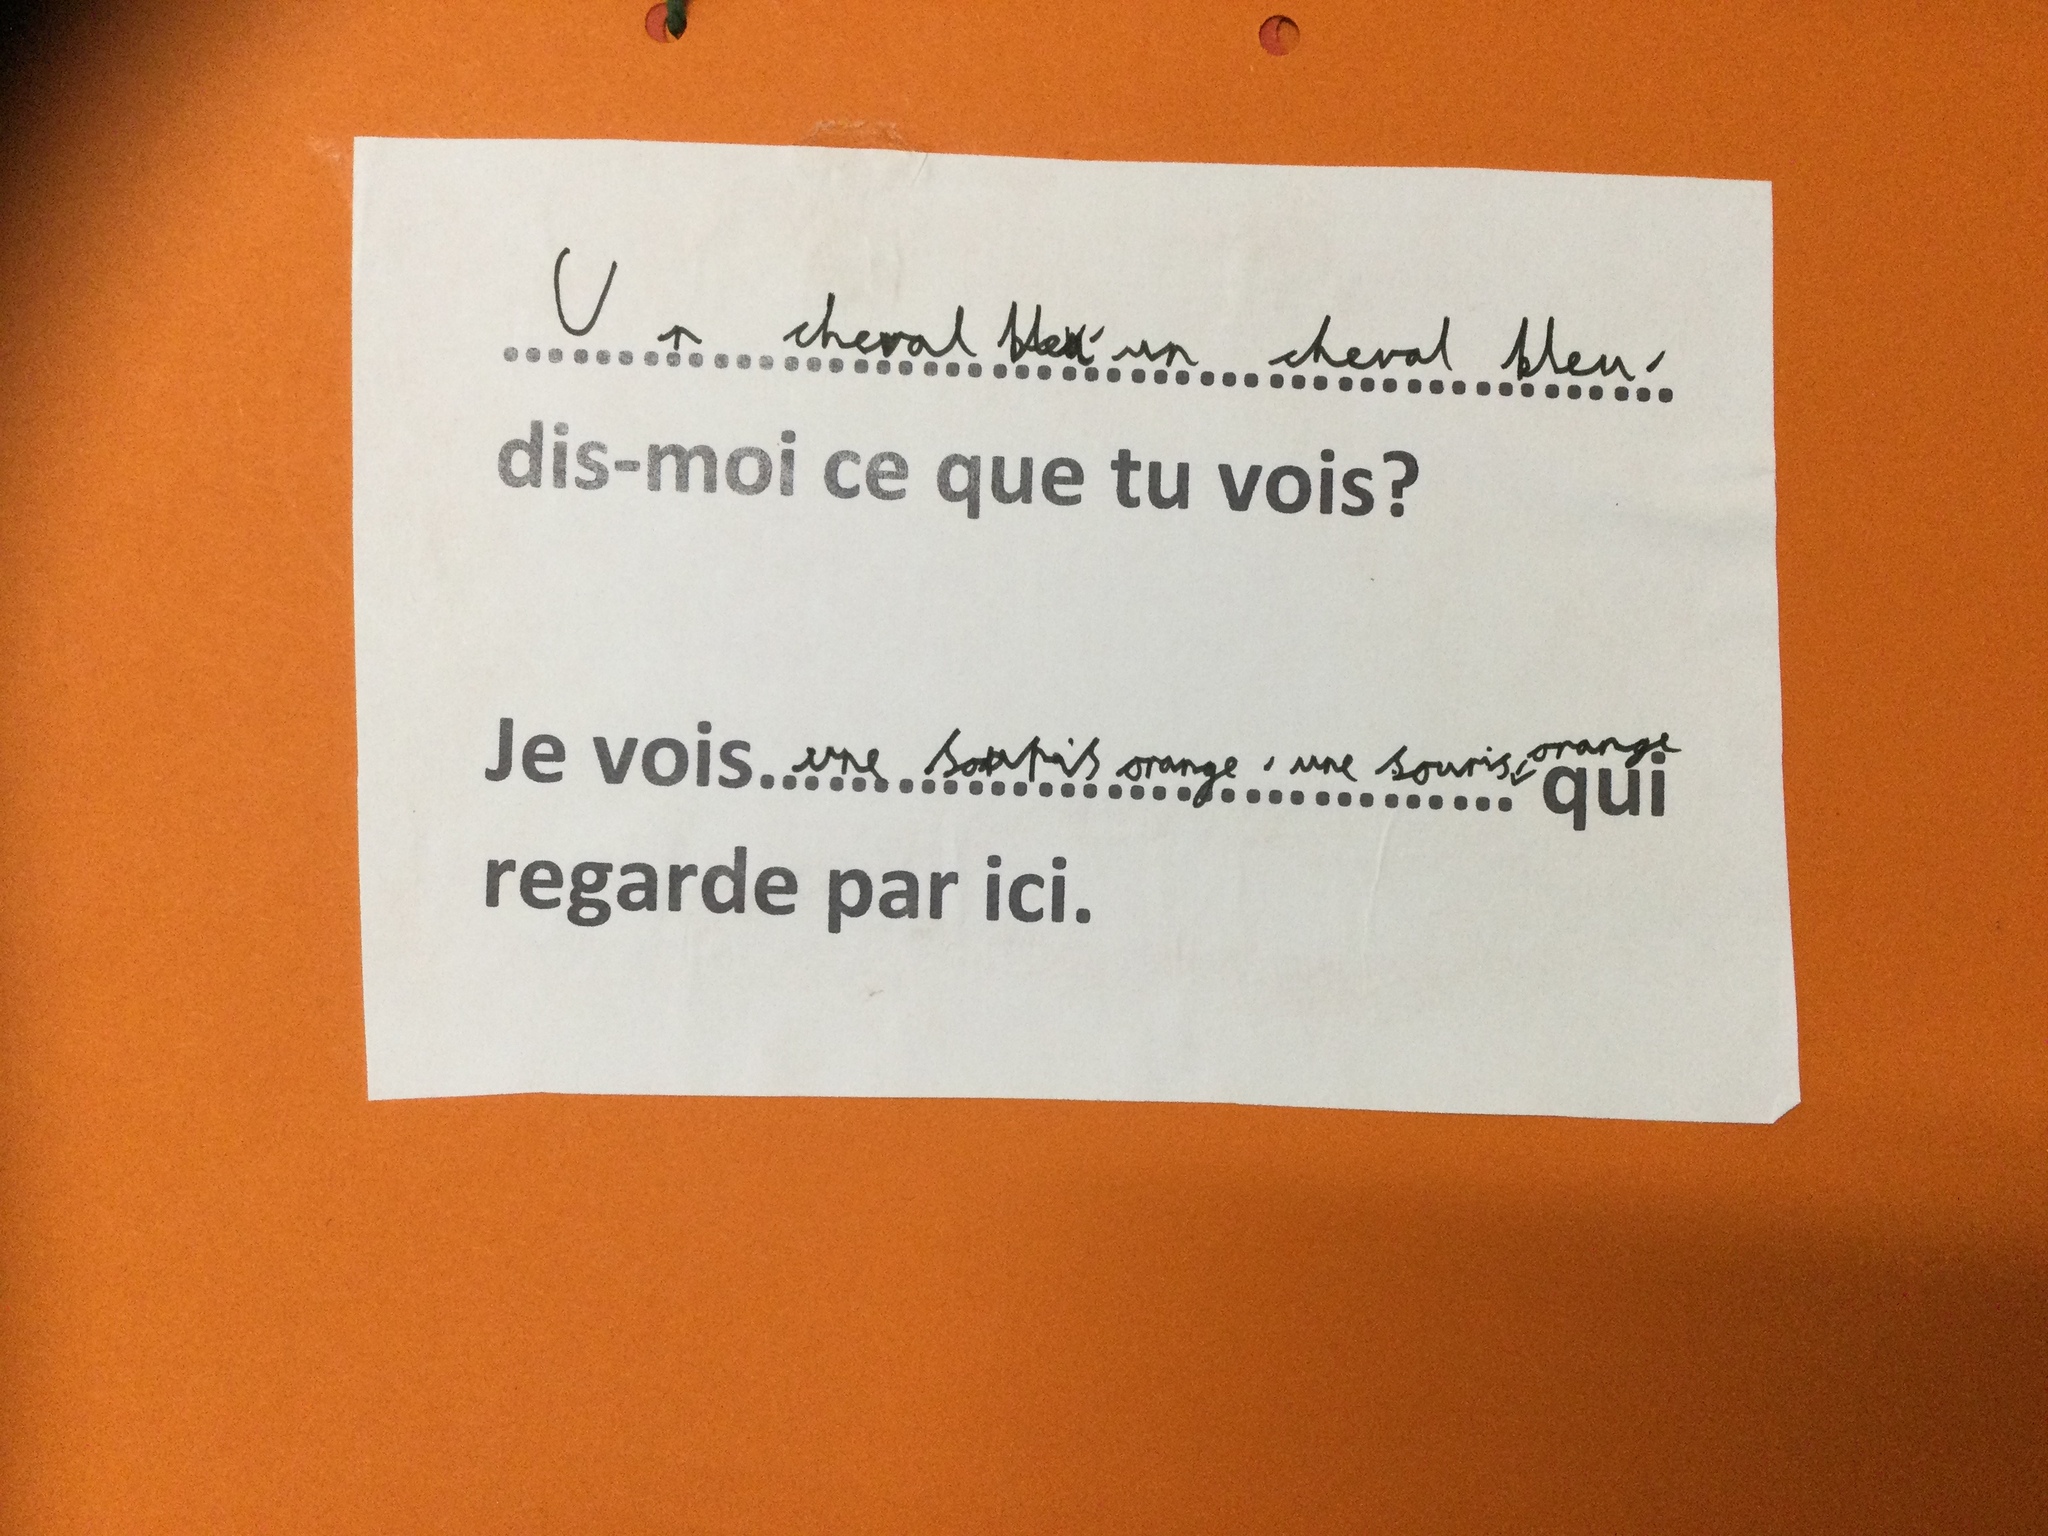 Un cheval bleu, un cheval bleu,
dis-moi ce que tu vois?
Je vois une souris orange, une souris, orange qui
regarde par ici.